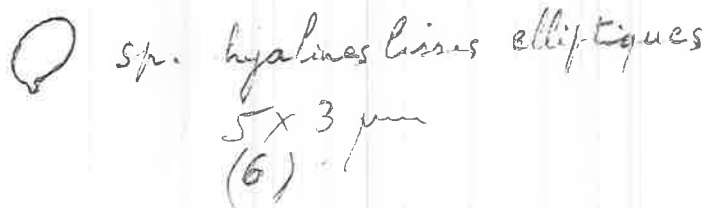 sp. hyalines lisses elliptiques
5 x 3 µm
(6)